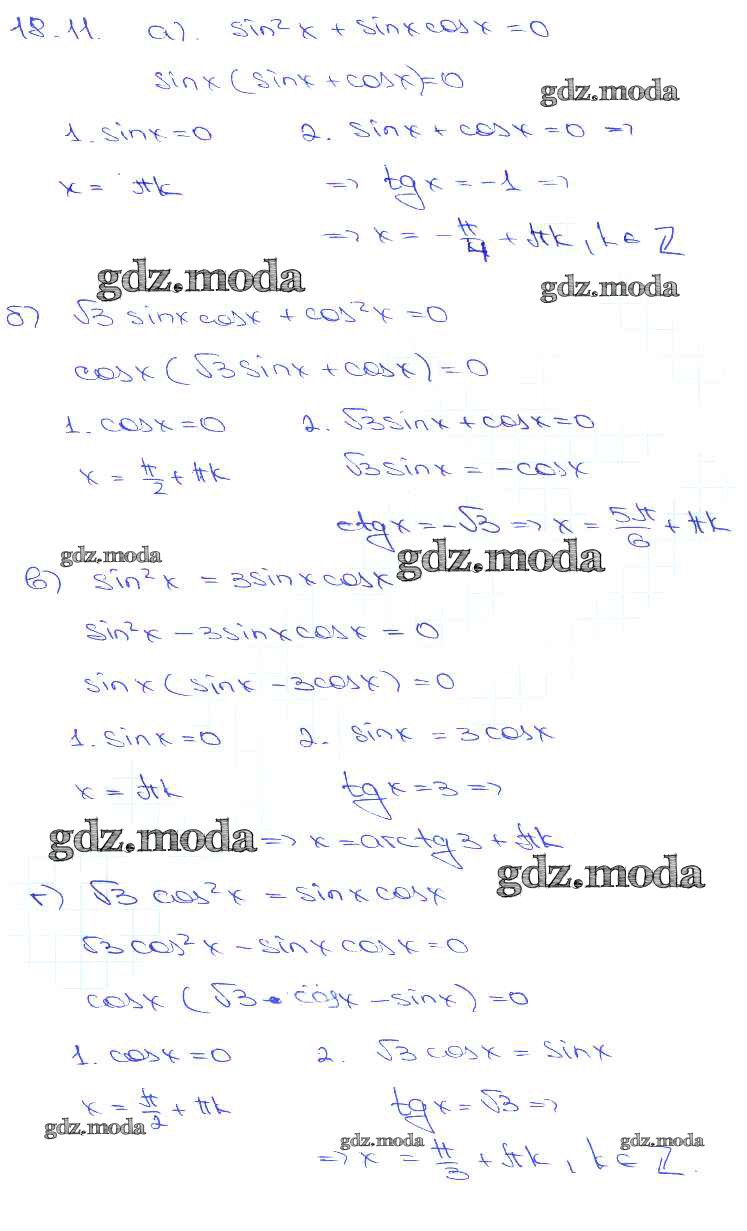 18.11. а). sin²x + sinxcosx = 0
sinx(sinx + cosx) = 0
gdz.moda
1. sinx = 0 2. sinx + cosx = 0 =>
x = πk => tgx = -1 =>
=> x = -π/4 + πk, k ∈ Z
gdz.moda gdz.moda
б) √3 sinxcosx + cos²x = 0
cosx(√3sinx + cosx) = 0
1. cosx = 0 2. √3sinx + cosx = 0
x = π/2 + πk √3sinx = -cosx
ctgx = -√3 => x = 5π/6 + πk
gdz.moda gdz.moda
в) sin²x = 3sinxcosx
sin²x - 3sinxcosx = 0
sinx(sinx - 3cosx) = 0
1. sinx = 0 2. sinx = 3cosx
x = πk tgx = 3 =>
gdz.moda => x = arctg3 + πk
gdz.moda
г) √3 cos²x = sinxcosx
√3cos²x - sinxcosx = 0
cosx(√3 · cosx - sinx) = 0
1. cosx = 0 2. √3cosx = sinx
x = π/2 + πk tgx = √3 =>
gdz.moda gdz.moda gdz.moda
=> x = π/3 + πk, k ∈ Z.